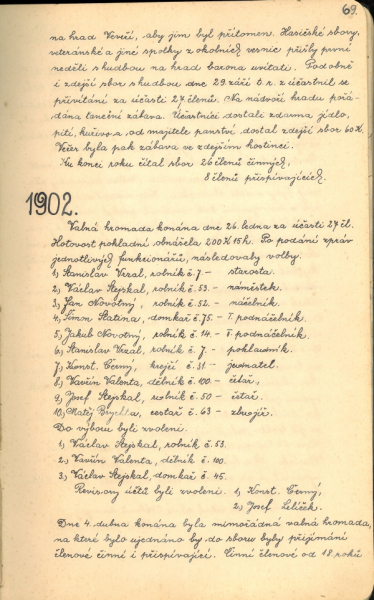 69.
na hrad Veveří, aby jim byl přítomen. Hasičské sbory,
veteránské a jiné spolky z okolních vesnic přišly první
neděli s hudbou na hrad barona uvítati. Podobně
i zdejší sbor s hudbou dne 29. září t.r. zúčastnil se
přivítání za účasti 27 členů. Na nádvoří hradu pořá-
dána taneční zábava. Účastníci dostali zdarma, jídlo,
pití, kuřivo a od majitele panství dostal zdejší sbor 60 K.
Večer byla pak zábava ve zdejším hostinci.
Ku konci roku čítal sbor 26 členů činných,
8 členů přispívajících.
1902.
Valná hromada konána dne 26. ledna za účasti 27 čl.
Hotovost pokladní obnášela 200 K 15 h. Po podání zpráv
jednotlivých funkcionářů, následovaly volby.
1., Stanislav Vrzal, rolník č. 7. – starosta.
2., Václav Stejskal, rolník č. 53. – náměstek.
3., Jan Novotný, rolník č. 52. – náčelník.
4., Šimon Šťatina, domkář č. 75. – I. podnáčelník.
5., Jakub Novotný, rolník č. 14. – II. podnáčelník.
6., Stanislav Vrzal, rolník č. 7. – pokladník.
7., Konst. Černý, krejčí č. 31. – jednatel.
8., Vavřín Valenta, dělník č. 100. – četař,
9., Josef Stejskal, rolník č. 50 – četař.
10., Matěj cestář č. 63 – zbrojíř.
Do výboru byli zvoleni.
1., Václav Stejskal, rolník č. 53.
2., Vavřín Valenta, dělník č. 100.
3., Václav Stejskal, domkář č. 45.
Revisory účtů byli zvoleni. 1., Konst. Černý,
2., Josef Lelíček.
Dne 4. dubna konána byla mimořádná valná hromada,
na které bylo ujednáno by do sboru byli přijímáni
členové činní i přispívající. Činní členové od 18 roků